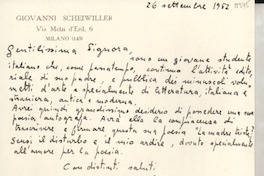 GIOVANNI SCHEIWILLER
Via Melzi d'Eril, 6
MILANO (149)
26 settembre 1952
Gentilissima Signora,
sono un giovane studente
italiano che, come passatempo, continua l'attività edito-
riale di suo padre, e pubblica dei minuscoli volu-
metti d'arte e specialmente di letteratura, italiana e
straniera, antica e moderna.
Avrei grandissimo desiderio di possedere una sua
poesia autografa. Avrà ella la compiacenza di
trascrivere e firmare questa sua poesia "La madre triste"?
Scusi il disturbo e il mio ardire, dovuto specialmente
all'amore per la poesia.
Con distinti saluti